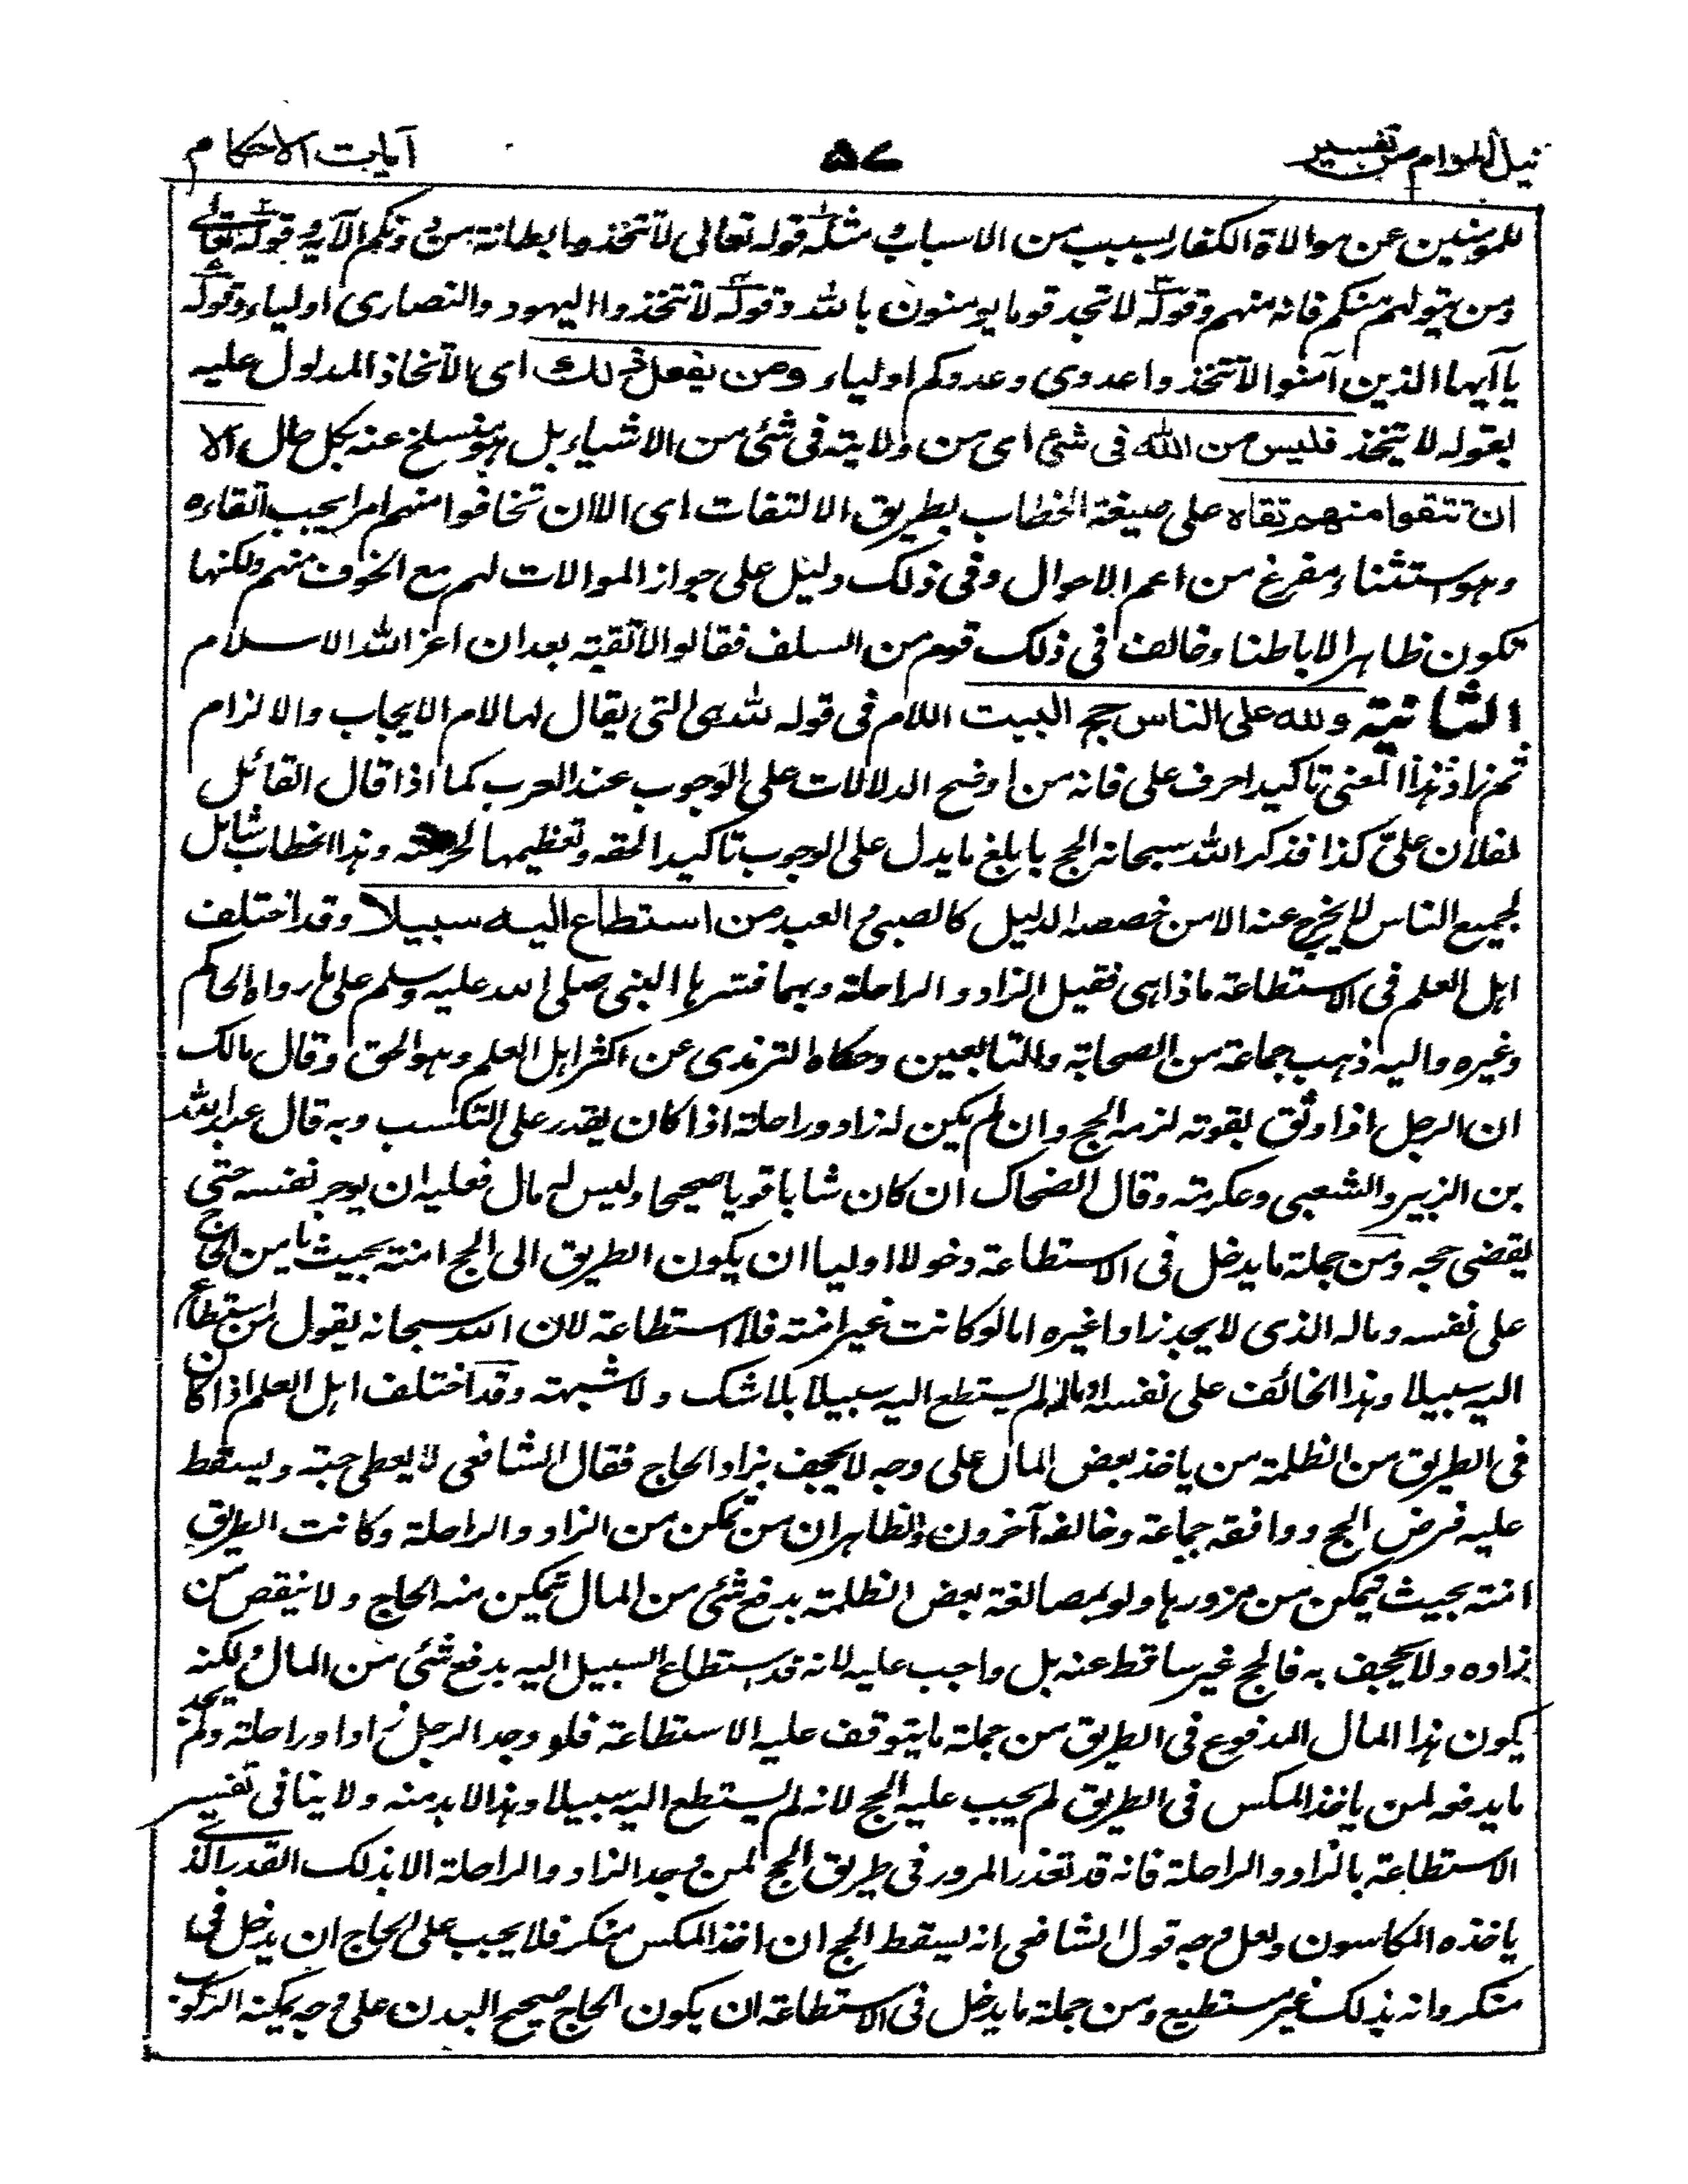 نيل المرام من تفسير
٥٧
آيات الاحكام
للمؤمنين عن موالاة الكفار بسبب من الاسباب ومثله قوله تعالى لا تتخذوا بطانة من دونكم الآية وقوله تعالى
ومن يتولهم منكم فانه منهم وقوله لا تجد قوما يومنون بالله وقوله لا تتخذوا اليهود والنصارى اولياء وقوله
يا أيها الذين آمنوا لا تتخذوا عدوى وعدوكم اولياء ومن يفعل ذلك اى الاتخاذ المدلول عليه
بقوله لا يتخذ فليس من الله فى شئ اى من ولايته فى شئى من الاشياء بل هو منسلخ عنه بكل حال الا
ان تتقوا منهم تقاه على صيغة الخطاب بطريق الالتفات اى الا ان تخافوا منهم امرا يجب اتقاءه
وهو استثناء مفرغ من اعم الاحوال وفى ذلك دليل على جواز الموالات لهم مع الخوف منهم ولكنها
تكون ظاهرا لا باطنا وخالف فى ذلك قوم من السلف فقالوا لا تقية بعد ان اعز الله الاسلام
الثانية ولله على الناس حج البيت اللام فى قوله لله هى التى يقال لها لام الايجاب والالزام
ثم زاد هذا المعنى تاكيدا حرف على فانه من اوضح الدلالات على الوجوب عند العرب كما اذا قال القائل
لفلان على كذا فذكر الله سبحانه الحج بابلغ ما يدل على الوجوب تاكيدا لحقه وتعظيما لحرمته وهذا الخطاب شامل
لجميع الناس لا يخرج عنه الا من خصصه الدليل كالصبى والعبد من استطاع اليه سبيلا وقد اختلف
اهل العلم فى الاستطاعة ماذا هى فقيل الزاد والراحلة وبهما فسرها النبى صلى الله عليه وسلم على ما رواه الحاكم
وغيره واليه ذهب جماعة من الصحابة والتابعين وحكاه الترمذى عن اكثر اهل العلم وهو الحق وقال مالك
ان الرجل اذا وثق بقوته لزمه الحج وان لم يكن له زاد وراحلة اذا كان يقدر على التكسب وبه قال عبد الله
بن الزبير والشعبى وعكرمة وقال الضحاك ان كان شابا قويا صحيحا وليس له مال فعليه ان يوجر نفسه حتى
يقضى حجه ومن جملة ما يدخل فى الاستطاعة دخولا اوليا ان يكون الطريق الى الحج امنة بحيث يامن الحاج
على نفسه وماله الذى لا يجد زادا غيره اما لو كانت غير امنة فلا استطاعة لان الله سبحانه يقول من استطاع
اليه سبيلا وهذا الخائف على نفسه وماله لم يستطع اليه سبيلا بلا شك ولا شبهة وقد اختلف اهل العلم اذا كان
فى الطريق من الظلمة من ياخذ بعض المال على وجه لا يجحف بزاد الحاج فقال الشافعى لا يعطى حبة ويسقط
عليه فرض الحج ووافقه جماعة وخالفه آخرون والظاهر ان من تمكن من الزاد والراحلة وكانت الطريق
امنة بحيث يتمكن من مرورها ولو بمصانعة بعض الظلمة بدفع شئى من المال يتمكن منه الحاج ولا ينقص من
زاده ولا يجحف به فالحج غير ساقط عنه بل واجب عليه لانه قد استطاع السبيل اليه بدفع شئى من المال ولكنه
يكون هذا المال المدفوع فى الطريق من جملة ما يتوقف عليه الاستطاعة فلو وجد الرجل زادا وراحلة ولم يجد
ما يدفعه لمن ياخذ المكس فى الطريق لم يجب عليه الحج لانه لم يستطع اليه سبيلا وهذا لا بد منه ولا ينافى تفسير
الاستطاعة بالزاد والراحلة فانه قد تعذر المرور فى طريق الحج لمن وجد الزاد والراحلة الا بذلك القدر الذى
ياخذه المكاسون ولعل وجه قول الشافعى انه يسقط الحج ان اخذ المكس منكر فلا يجب على الحاج ان يدخل فى
منكر وانه بذلك غير مستطيع ومن جملة ما يدخل فى الاستطاعة ان يكون الحاج صحيح البدن على وجه يمكنه الركوب